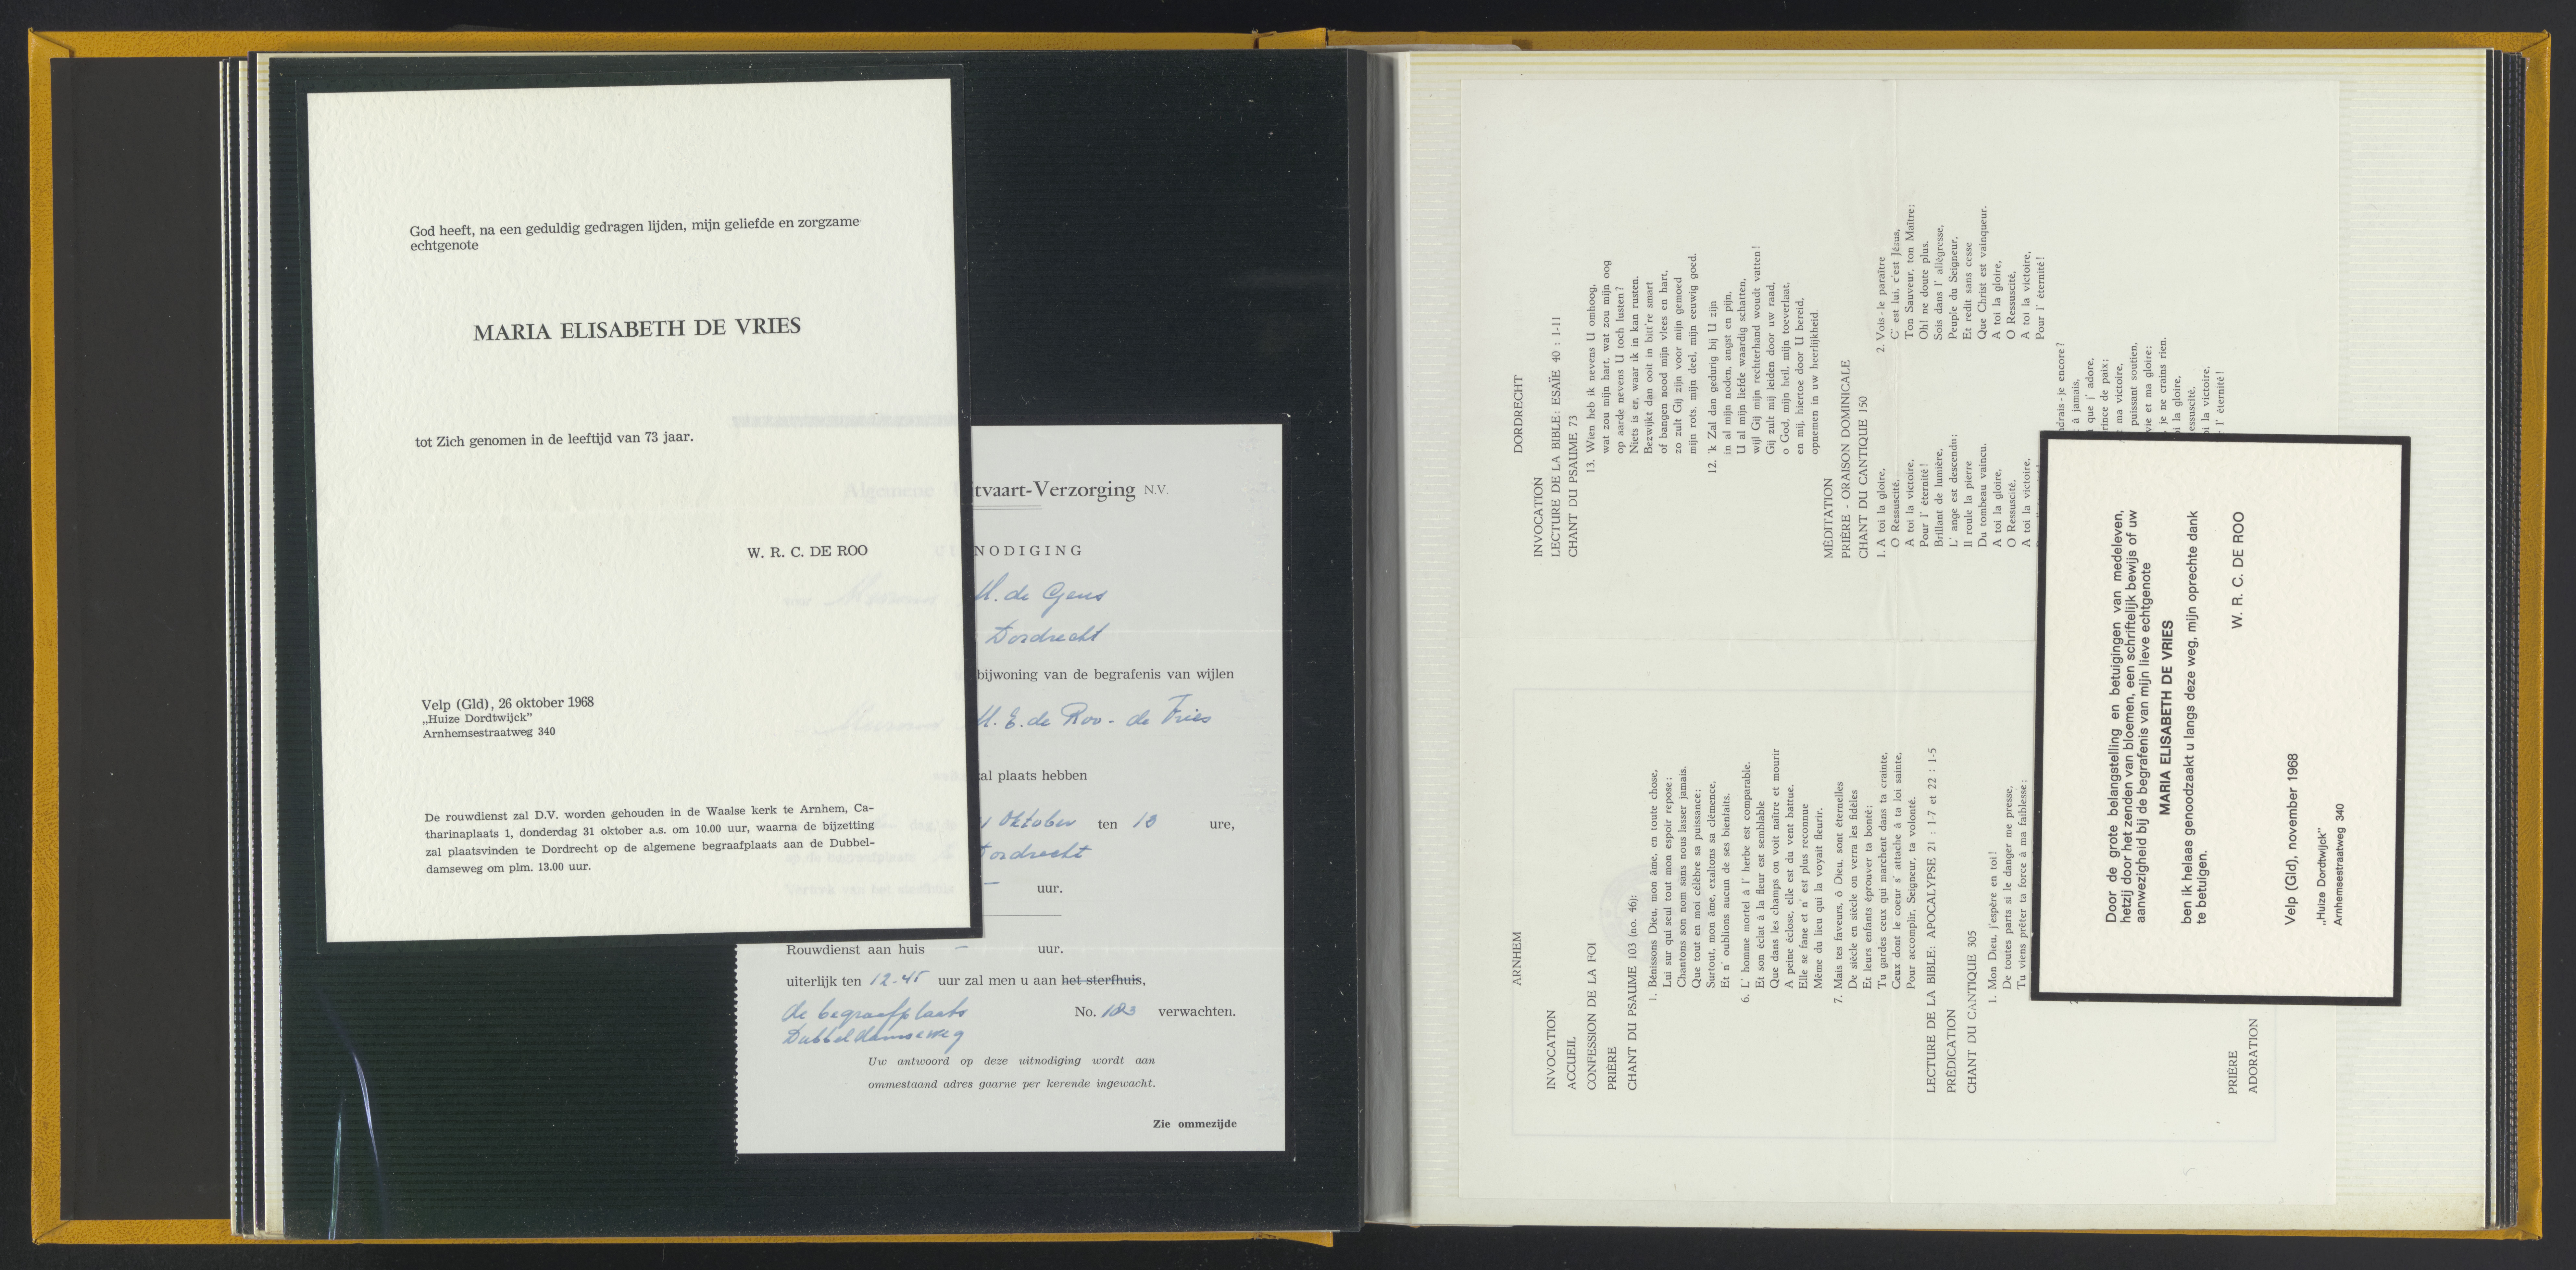 God heeft, na een geduldig gedragen lijden, mijn geliefde en zorgzame
echtgenote
MARIA ELISABETH DE VRIES
tot Zich genomen in de leeftijd van 73 jaar.
W. R. C. DE ROO
Velp (Gld), 26 oktober 1968
„Huize Dordtwijck”
Arnhemsestraatweg 340
De rouwdienst zal D.V. worden gehouden in de Waalse kerk te Arnhem, Ca-
tharinaplaats 1, donderdag 31 oktober a.s. om 10.00 uur, waarna de bijzetting
zal plaatsvinden te Dordrecht op de algemene begraafplaats aan de Dubbel-
damseweg om plm. 13.00 uur.
Algemene Uitvaart-Verzorging N.V.
NODIGING
Mevrouw M. de Geus
Dordrecht
bijwoning van de begrafenis van wijlen
Mevrouw M. E. de Roo - de Fries
zal plaats hebben
oktober ten 13 ure,
Dordrecht
Vertrek van het sterfhuis – uur.
Rouwdienst aan huis – uur.
uiterlijk ten 12-45 uur zal men u aan het sterfhuis,
de begraafplaats No. 183 verwachten.
Dubbeldamseweg
Uw antwoord op deze uitnodiging wordt aan
ommestaand adres gaarne per kerende ingewacht.
Zie ommezijde
ARNHEM
INVOCATION
ACCUEIL
CONFESSION DE LA FOI
PRIÈRE
CHANT DU PSAUME 103 (no. 46):
1. Bénissons Dieu, mon âme, en toute chose,
Lui sur qui seul tout mon espoir repose;
Chantons son nom sans nous lasser jamais.
Que tout en moi célèbre sa puissance;
Surtout, mon âme, exaltons sa clémence,
Et n' oublions aucun de ses bienfaits.
6. L' homme mortel à l' herbe est comparable.
Et son éclat à la fleur est semblable
Que dans les champs on voit naître et mourir
A peine éclose, elle est du vent battue.
Elle se fane et n' est plus reconnue
Même du lieu qui la voyait fleurir.
7. Mais tes faveurs, ô Dieu, sont éternelles
De siècle en siècle on verra les fidèles
Et leurs enfants éprouver ta bonté:
Tu gardes ceux qui marchent dans ta crainte,
Ceux dont le coeur s' attache à ta loi sainte,
Pour accomplir, Seigneur, ta volonté.
LECTURE DE LA BIBLE: APOCALYPSE 21 : 1-7 et 22 : 1-5
PRÉDICATION
CHANT DU CANTIQUE 305
1. Mon Dieu, j'espère en toi!
De toutes parts si le danger me presse,
Tu viens prêter ta force à ma faiblesse;
PRIÈRE
ADORATION
DORDRECHT
INVOCATION
LECTURE DE LA BIBLE: ESAÏE 40 : 1-11
CHANT DU PSAUME 73
13. Wien heb ik nevens U omhoog,
wat zou mijn hart, wat zou mijn oog
op aarde nevens U toch lusten?
Niets is er, waar ik in kan rusten.
Bezwijkt dan ooit in bitt're smart
of bangen nood mijn vlees en hart,
zo zult Gij zijn voor mijn gemoed
mijn rots, mijn deel, mijn eeuwig goed.
12. 'k Zal dan gedurig bij U zijn
in al mijn noden, angst en pijn,
U al mijn liefde waardig schatten,
wijl Gij mijn rechterhand woudt vatten!
Gij zult mij leiden door uw raad,
o God, mijn heil, mijn toeverlaat,
en mij, hiertoe door U bereid,
opnemen in uw heerlijkheid.
MÉDITATION
PRIÈRE - ORAISON DOMINICALE
CHANT DU CANTIQUE 150
1. A toi la gloire,
O Ressuscité.
A toi la victoire,
Pour l' éternité!
Brillant de lumière,
L' ange est descendu;
Il roule la pierre
Du tombeau vaincu.
A toi la gloire,
O Ressuscité.
A toi la victoire.
2. Vois-le paraître
C' est lui, c'est Jésus,
Ton Sauveur, ton Maître;
Oh! ne doute plus.
Sois dans l' allégresse,
Peuple du Seigneur,
Et redit sans cesse
Que Christ est vainqueur.
A toi la gloire,
O Ressuscité,
A toi la victoire,
Pour l' éternité!
drais-je encore?
à jamais,
que j' adore,
rince de paix;
ma victoire,
puissant soutien,
vie et ma gloire;
je ne crains rien.
la gloire,
essuscité,
la victoire,
l' éternité!
Door de grote belangstelling en betuigingen van medeleven,
hetzij door het zenden van bloemen, een schriftelijk bewijs of uw
aanwezigheid bij de begrafenis van mijn lieve echtgenote
MARIA ELISABETH DE VRIES
ben ik helaas genoodzaakt u langs deze weg, mijn oprechte dank
te betuigen.
W. R. C. DE ROO
Velp (Gld), november 1968
„Huize Dordtwijck”
Arnhemsestraatweg 340